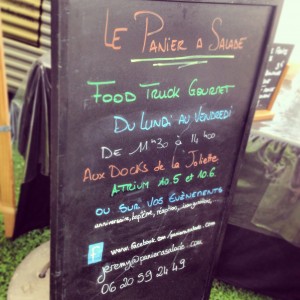 Le Panier à Salade
Food Truck Gourmet
Du Lundi au Vendredi
De 11h30 à 14h00
Aux Docks de la Joliette
Atrium 10.5 et 10.6
ou sur vos évènements
anniversaire, baptême, réception, inauguration...
www.facebook.com/panierasalade.com
jeremy@panierasalade.com
06 20 59 24 49